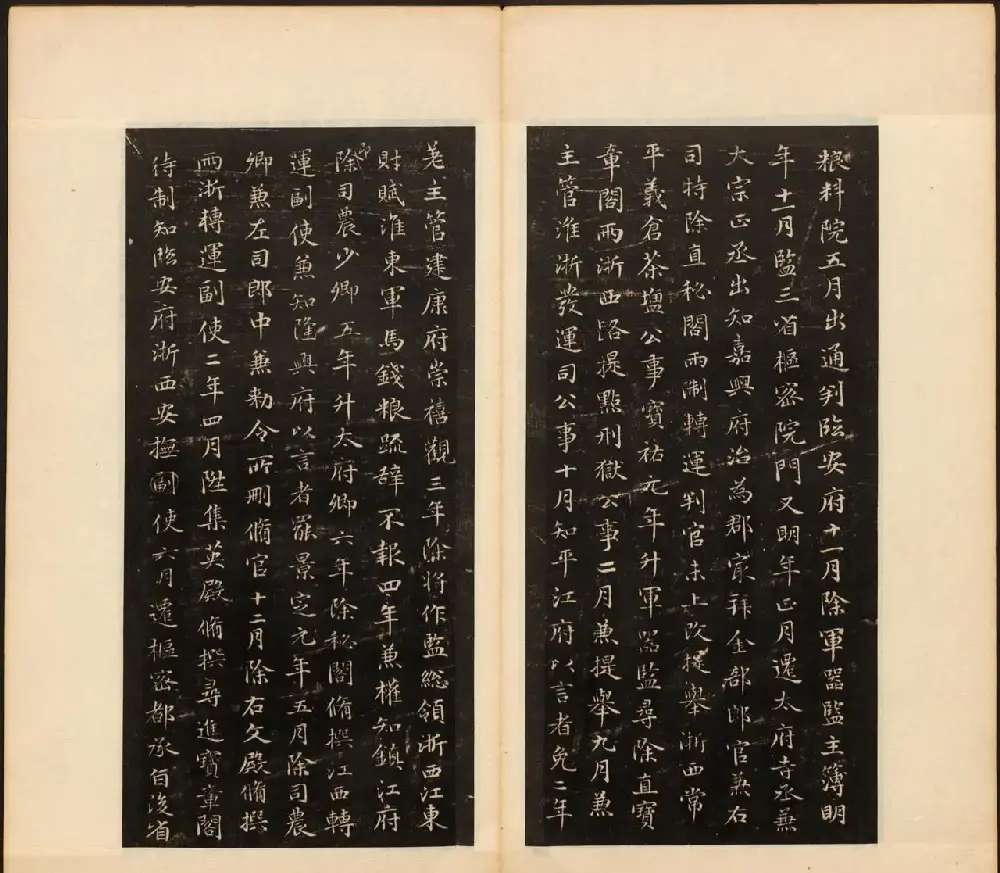 粮料院五月出通判臨安府十一月除軍器監主簿明
年十一月監三省樞密院門又明年正月遷太府寺丞兼
大宗正丞出知嘉興府治為郡㝡拜金部郎官兼右
司特除直秘閣兩淛轉運判官未上改提舉浙西常
平義倉茶塩公事寶祐元年升軍器監尋除直寶
章閣兩浙西路提點刑獄公事二月兼提舉九月兼
主管淮浙發運司公事十月知平江府以言者免二年
差主管建康府崇禧觀三年除將作監總領浙西江東
財賦淮東軍馬錢粮疏辞不報四年兼權知鎮江府
除司農少卿五年升太府卿六年除秘閣脩撰江西轉
運副使兼知隆興府以言者罷景定元年五月除司農
卿兼左司郎中兼勑令所刪脩官十二月除右文殿脩撰
兩浙轉運副使二年四月陞集英殿脩撰尋進寶章閣
待制知臨安府浙西安撫副使六月遷樞密都承旨後省